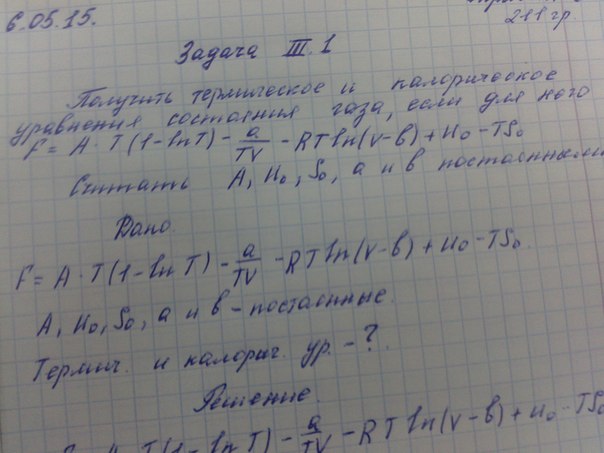 6.05.15.
211 гр.
Задача III.1
Получить термическое и калорическое
уравнения состояния газа, если для него
F = A·T(1-lnT) - a/TV - RTln(v-в) + U₀ - TS₀
Считать A, U₀, S₀, a и в постоянными
Дано
F = A·T(1-lnT) - a/TV - RTln(v-в) + U₀ - TS₀.
A, U₀, S₀, a и в - постоянные.
Термич. и калорич. ур. - ?
Решение.
T(1-lnT) - a/TV - RTln(v-в) + U₀ - TS₀